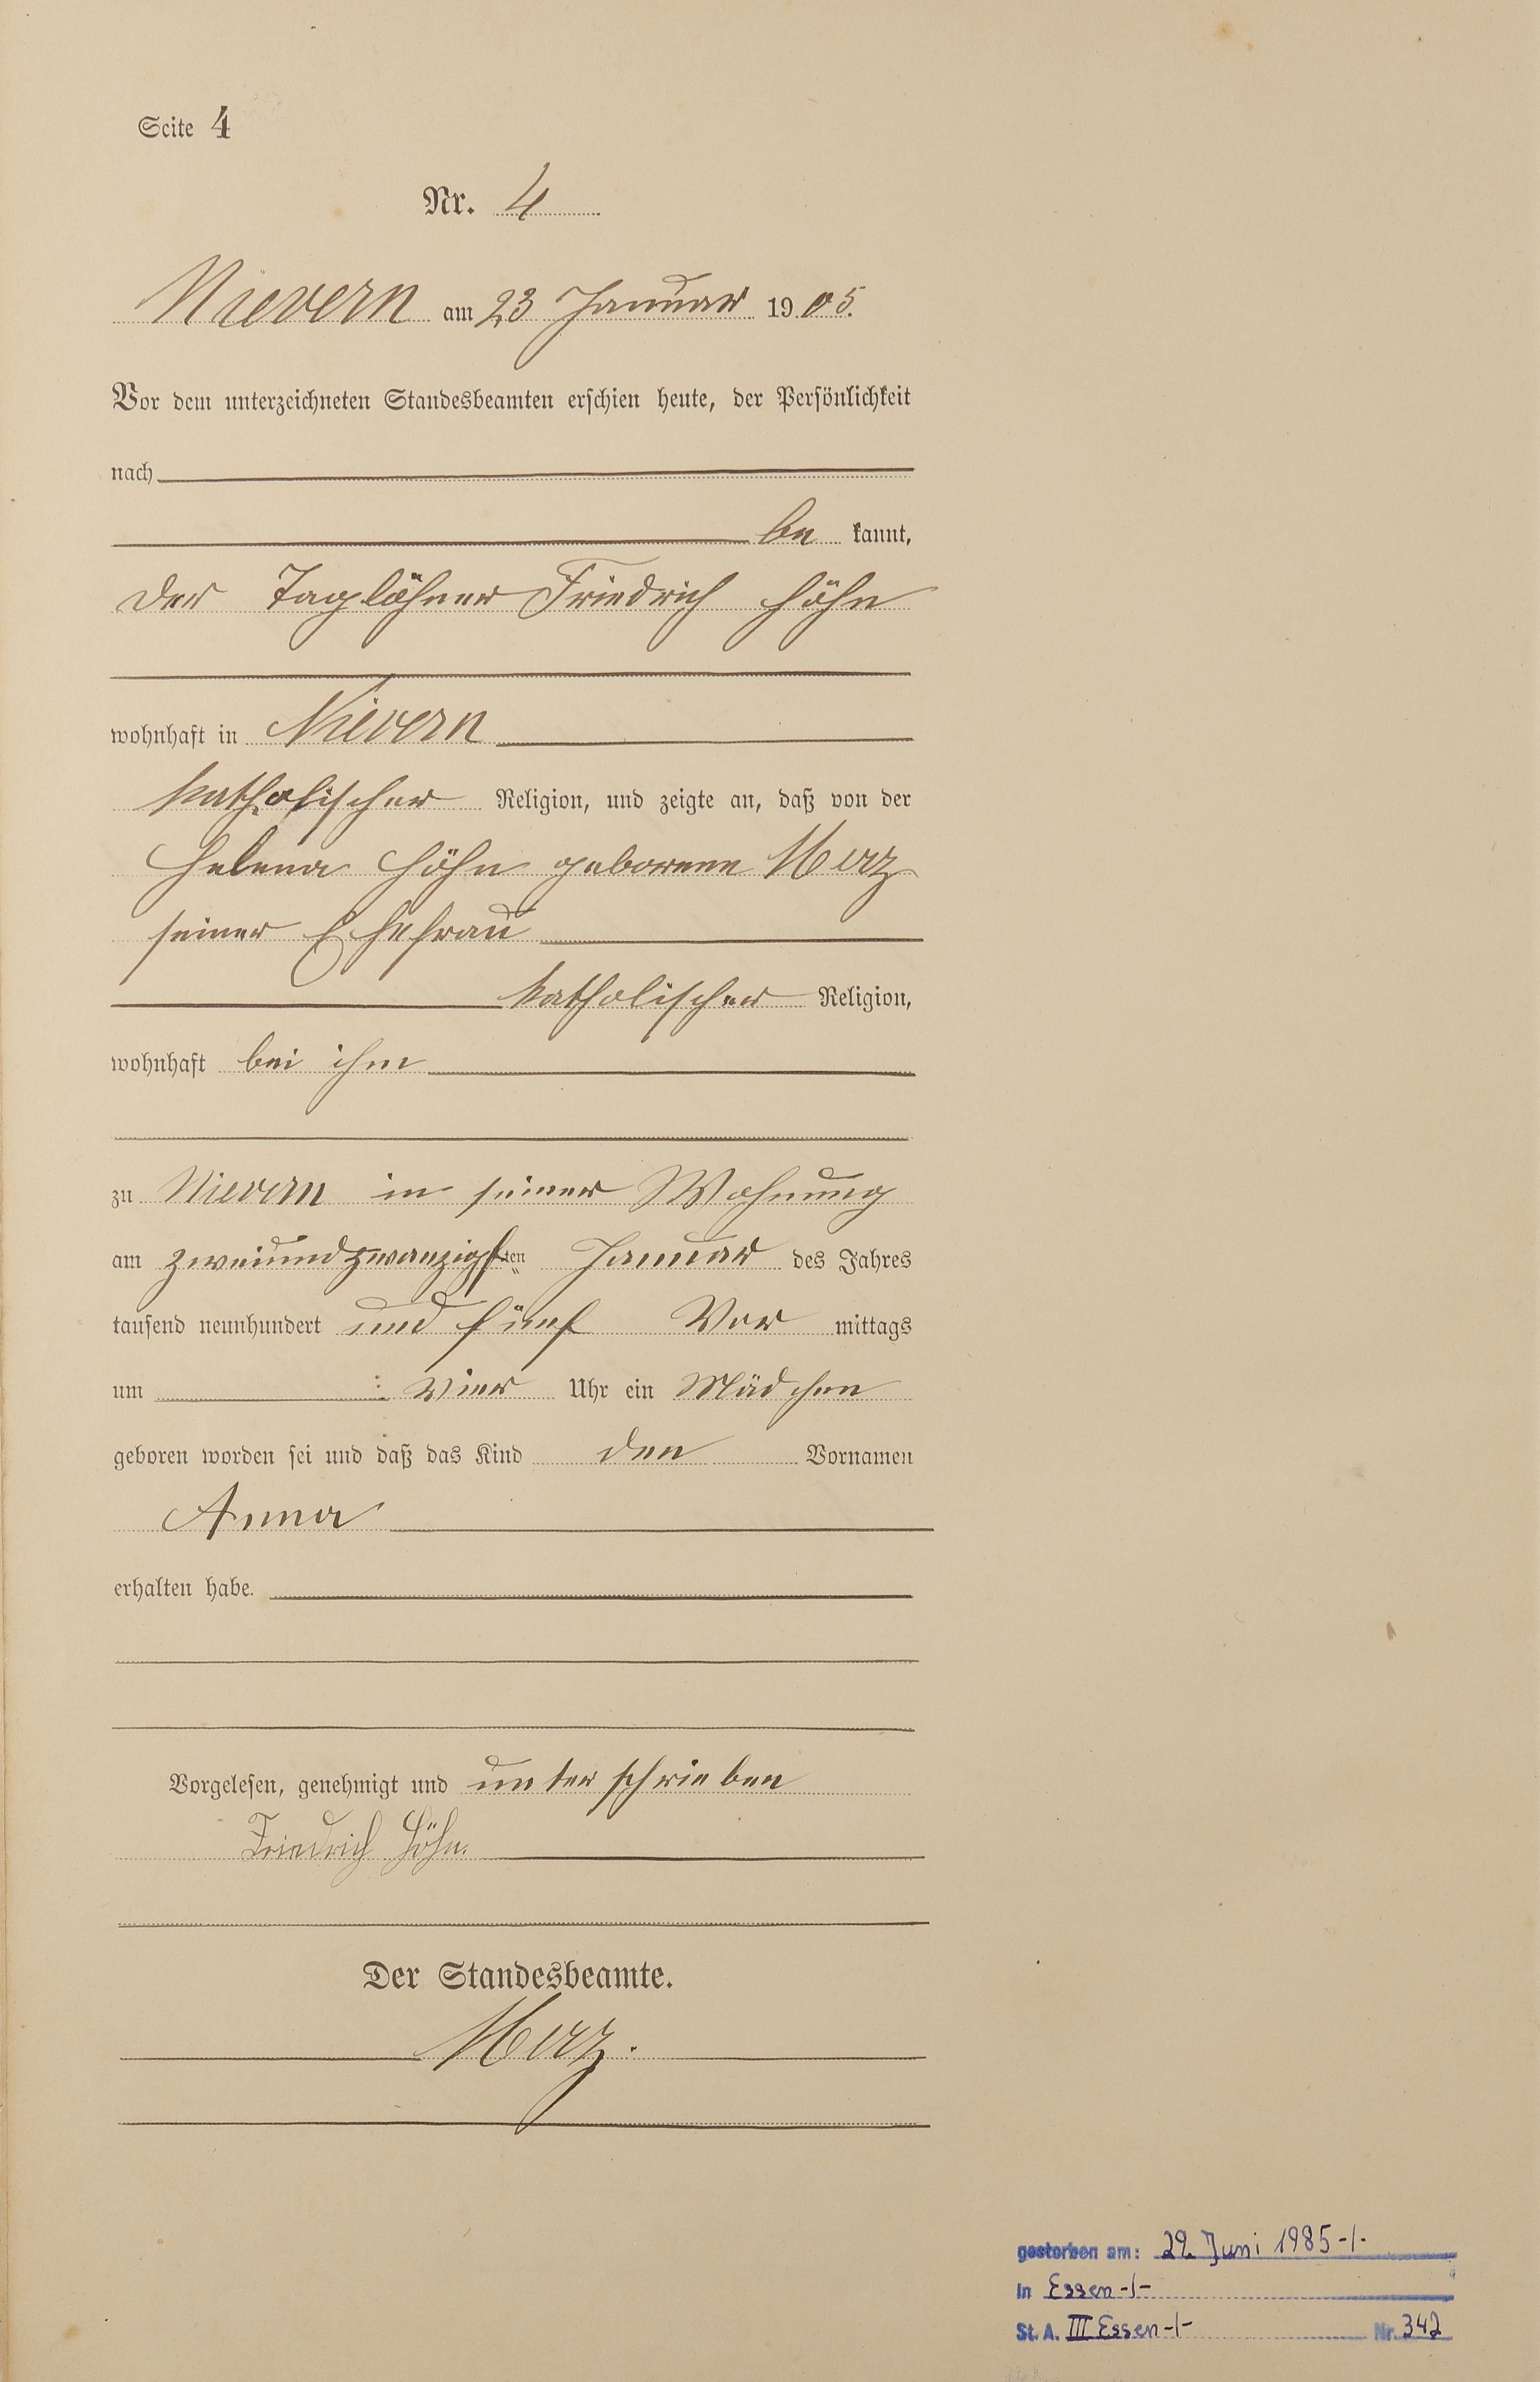 Seite 4
Nr. 4
Nievern am 23 Januar 1905.
Vor dem unterzeichneten Standesbeamten erschien heute, der Persönlichkeit
nach
be kannt,
der Taglöhner Friedrich Höhn
wohnhaft in Nievern
katholischer Religion, und zeigte an, daß von der
Helena Höhn geborenen Merz
seiner Ehefrau
katholischer Religion,
wohnhaft bei ihm
zu Nievern in seiner Wohnung
am zweiundzwanzigsten Januar des Jahres
tausend neunhundert und fünf Vor mittags
um vier Uhr ein Mädchen
geboren worden sei und daß das Kind den Vornamen
Anna
erhalten habe.
Vorgelesen, genehmigt und unterschrieben
Friedrich Höhn.
Der Standesbeamte.
Merz.
gestorben am: 29. Juni 1985 -/-
in Essen -/-
St. A. III Essen -/- Nr. 342